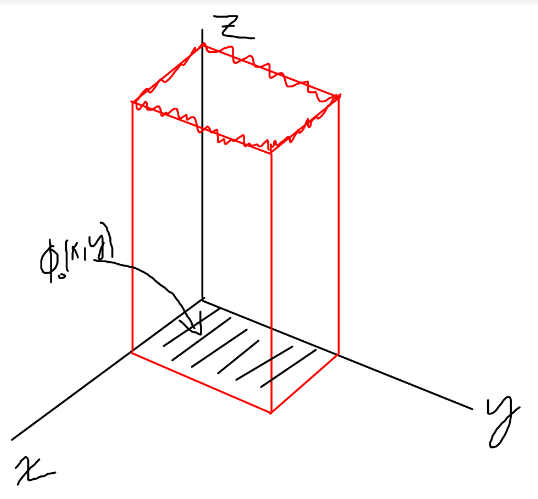 z
ϕ₀(x,y)
y
x